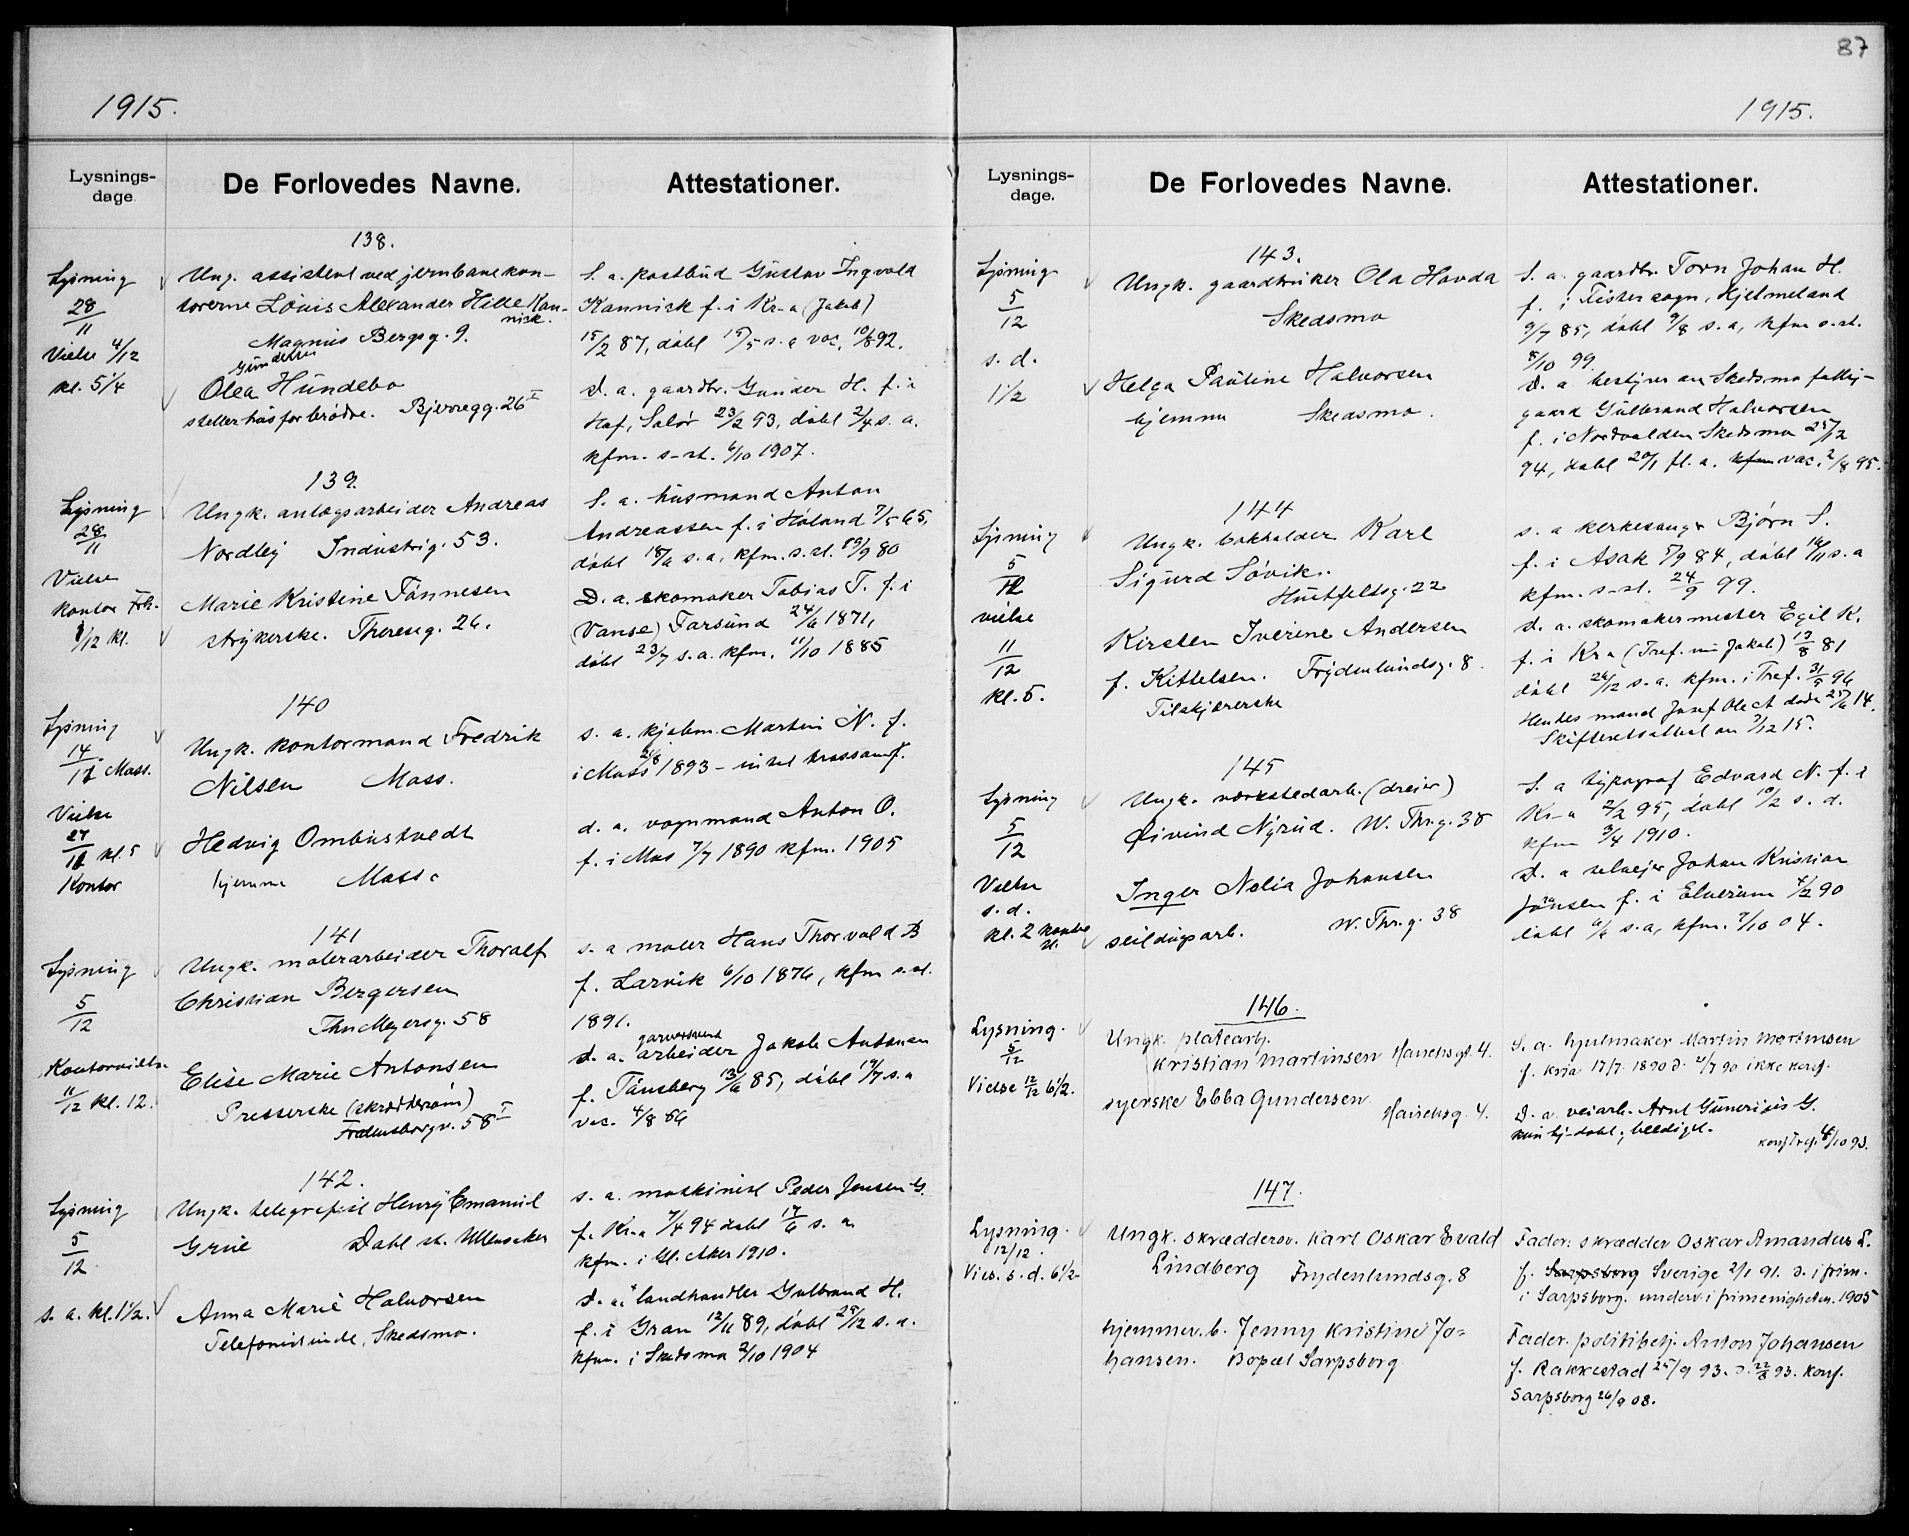 87
1915.
Lysnings-
dage
De Forlovedes Navne.
Attestationer.
138.
Lysning
28/11
Vielse 4/12
kl. 5 1/4
Ung. assistent ved jernbanekon-
torerne Louis Alexander Hille Kan-
nick.
Magnus Bergsg. 9.
Gundersen
Olea Hundebo
steller hus for brødre. Bjerregg. 26 I
S. a. postbud Gustav Ingvald
Kannick f. i Kr-a (Jakob)
15/2 87, døbt 15/5 s. a vac. 10/8 92.
D. a. gaardbr. Gunder H. f. i
Hof, Solør 23/2 93, døbt 2/4 s. a.
kfm. s-st. 6/10 1907.
139.
Lysning
28/11
Vielse
kontor
1/12 kl.
Ungk. anlægsarbeider Andreas
Nordley Industrig. 53.
Marie Kristine Tønnesen
strykerske. Thereseg. 26.
S. a. husmand Anton
Andreassen f. i Høland 7/5 65,
døbt 18/6 s. a, kfm. s. st. 19/9 80
D. a. skomaker Tobias T. f. i
(Vanse) Farsund 24/6 1871,
døbt 23/7 s. a. kfm. 11/10 1885
140
Lysning
14/11 Moss.
Vielse
27/11 kl. 5
Kontor
Ungk. kontormand Fredrik
Nilsen Moss.
Hedvig Ombustvedt
hjemme Moss.
s. a. kjøbm. Martin N. f.
i Moss 21/8 1893 –
d. a. vognmand Anton O.
f. i Mos 7/7 1890 kfm. 1905
141
Lysning
5/12
Kontorvielse
11/12 kl. 12.
Ungk. malerarbeider Thoralf
Christian Bergersen
Thv Meyersg. 58
Elise Marie Antonsen
Presserske (skrædderiøm)
Fredensborgv. 58 I
s. a maler Hans Thorvald B
f. Larvik 6/10 1876, kfm s. st.
1891.
garverisvend
D. a. arbeider Jakob Antonsen
f. Tønsberg 13/6 85, døbt 19/7 s. a
vac. 4/8 86
142.
Lysning
5/12
s. a. kl. 1 1/2.
Ungk. telegrafist Henry Emanuel
Grue Dahl st. Ullensaker
Anna Marie Halvorsen
Telefonistinde, Skedsmo.
s. a. maskinist Peder Jensen G.
f. Kr.a 7/4 94 døbt 17/6 s. a
kfm. i Gl. Aker 1910.
D. a. landhandler Gulbrand H.
f. i Gran 12/11 89, døbt 29/12 s. a.
kfm. i Skedsmo 2/10 1904
1915.
Lysnings-
dage.
De Forlovedes Navne.
Attestationer.
143.
Lysning
5/12
s. d.
1 1/2
Ungk. gaardbruker Ola Hovda
Skedsmo
Helga Pauline Halvorsen
hjemme Skedsmo.
S. a. gaardbr. Torn Johan H.
f. i Fister sogn, Hjelmeland
9/7 85, døbt 9/8 s. a, kfm s. st.
8/10 99.
D. a. bestyrer av Skedsmo fattig-
gaard Gulbrand Halvorsen
f. i Nordvolden Skedsmo 25/12
94, døbt 20/1 fl. a. kfm vac. 2/8 95.
144
Lysning
5/12
vielse
11/12
kl. 5.
Ungk. bokholder Karl
Sigurd Søvik.
Huitfeldsg. 22
Kirsten Iverine Andersen
f. Kittelsen. Frydenlundsg. 8
Tilskjærerske
s. a kirkesanger Bjørn S.
f. i Asak 5/9 84, døbt 16/11 s. a
kfm. s-st. 24/9 99.
D. a. skomakermester Egil K.
f. i Kra (Tref. nu Jakob) 19/8 81
døbt 26/12 s. a. kfm. i Tref. 31/5 96
Hendes mand Josef Olect døde 25/6 14.
Skifteretsattest av 7/12 15.
145
Lysning
5/12
Vielse
s. d.
kl. 2 kontor
Ungk. verkstedarb. (dreier)
Øivind Nyrud. W. Thr.g. 38
Inger Nelia Johansen
seildugsarb. W. Thr.g. 38
S. a typograf Edvard N. f. i
Kr-a 2/2 95, døbt 10/2 s. d.
kfm 3/4 1910.
D. a selveier Johan Kristian
Jonsen f. i Elverum 4/2 90
døbt 6/4 s. a, kfm. 2/10 04.
146.
Lysning.
5/12
Vielse 12/12 6 1/2.
Ungk. platearb.
Kristian Martinsen Hauchsgt. 4.
syerske Ebba Gundersen
Hauchsg. 4.
S. a. hjulmaker Martin Mortinsen
f. Kria 17/7. 1890 d. 21/7 90 ikke konf.
D. a. veiarb. Arnt Gunerius G.
kun hj-døbt, beediget.
konf Tref. 4/10 93.
147.
Lysning.
12/12.
Vies. s. d. 6 1/2
Ungk. skræddersv. Karl Oskar Evald
Lindberg Frydenlundsg. 8
hjemmev. b. Jenny Kristine Jo-
hansen. Bopæl Sarpsborg
Fader: skrædder Oskar Amandus L.
f. Sarpsborg Sverige 2/1 91. d. i frim.
i Sarpsborg. underv. i frimenigheten. 1905
Fader. politibetj. Anton Johansen
f. Rakkestad 25/9 93. d. 22/8 93. konf.
Sarpsborg 26/9 08.